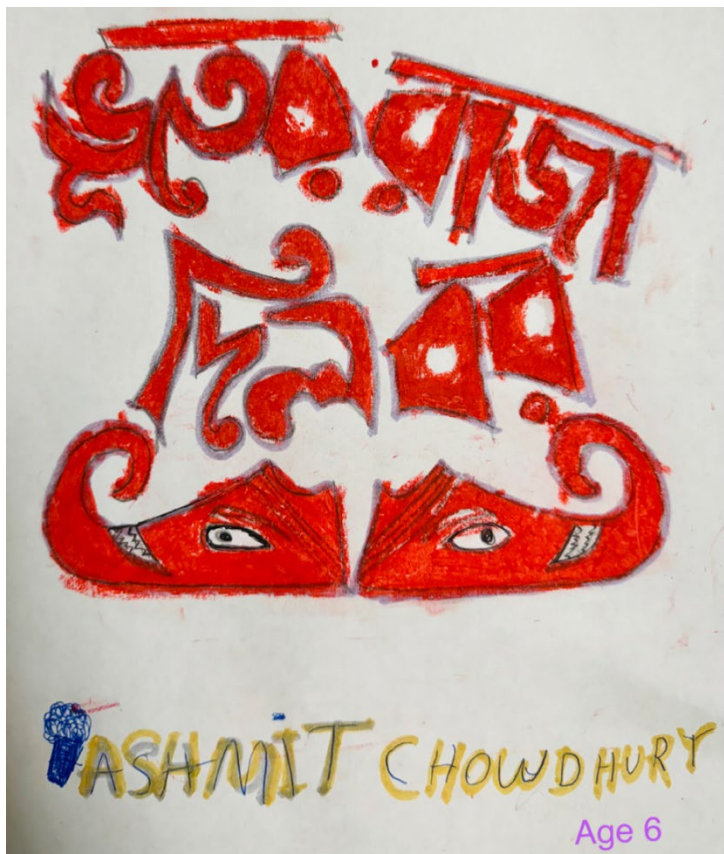 ভূতের রাজা
দিল বর
ASHMIT CHOWDHURY
Age 6